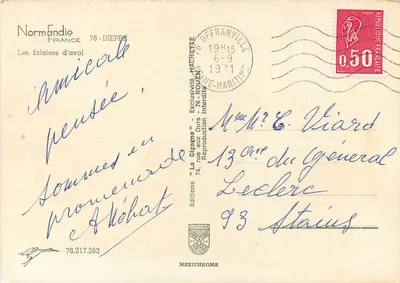 Normandie
FRANCE
76 - DIEPPE
Les falaises d'aval
Amicale
pensée,
sommes en
promenade
Editions "La Cigogne" - Exclusivité HACHETTE
74, rue aux Ours - 76 - ROUEN
Reproduction interdite
76 OFFRANVILLE
19H15
6-9
1971
SEINE-MARITIME
0,50
Mme Mr C. Viard
13 Ave du Général
Leclerc
93 Stains
76.217.262
MEXICHROME